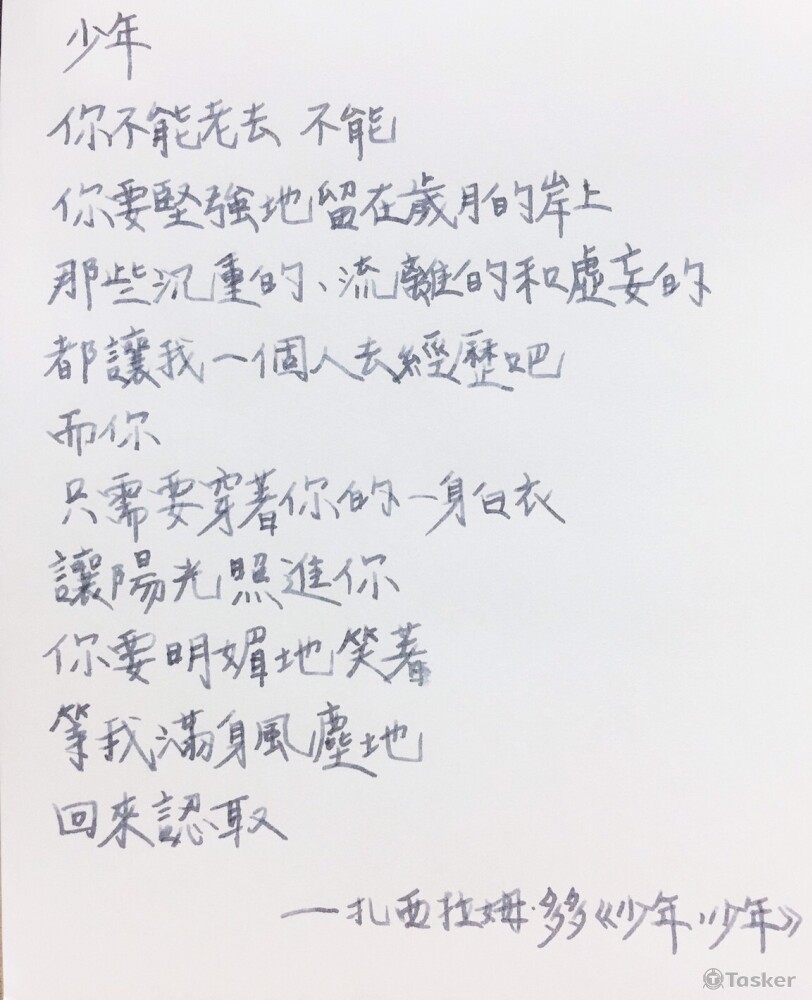 少年
你不能老去 不能
你要堅強地留在歲月的岸上
那些沉重的、流離的和虛妄的
都讓我一個人去經歷吧
而你
只需要穿著你的一身白衣
讓陽光照進你
你要明媚地笑著
等我滿身風塵地
回來認取
—扎西拉姆·多多《少年,少年》
Tasker